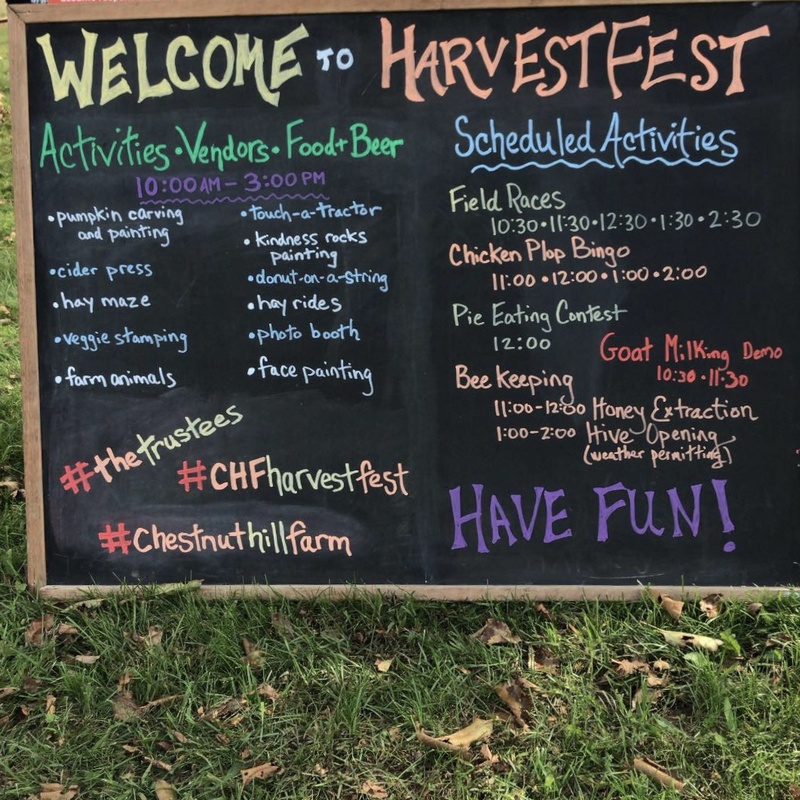 WELCOME TO HARVESTFEST
Activities • Vendors • Food + Beer
10:00 AM – 3:00 PM
• pumpkin carving
and painting
• cider press
• hay maze
• veggie stamping
• farm animals
• touch-a-tractor
• kindness rocks
painting
• donut-on-a-string
• hay rides
• photo booth
• face painting
#thetrustees
#CHFharvestfest
#Chestnuthillfarm
Scheduled Activities
Field Races
10:30 • 11:30 • 12:30 • 1:30 • 2:30
Chicken Plop Bingo
11:00 • 12:00 • 1:00 • 2:00
Pie Eating Contest
12:00
Goat Milking Demo
10:30 • 11:30
Bee keeping
11:00-12:00 Honey Extraction
1:00-2:00 Hive Opening
(weather permitting)
HAVE FUN!